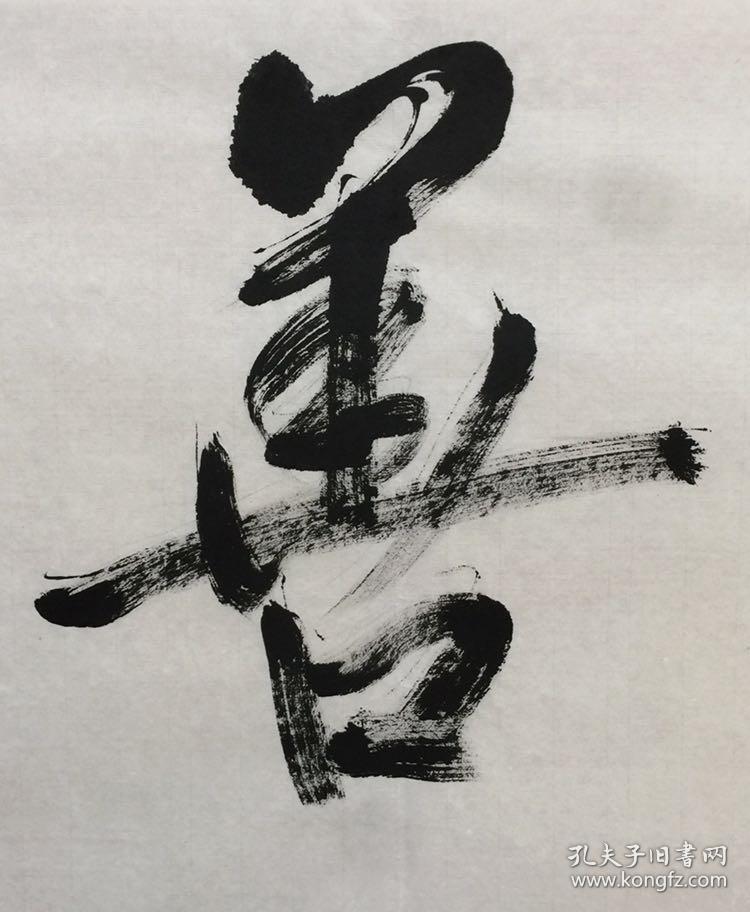 善
孔夫子旧書网
www.kongfz.com